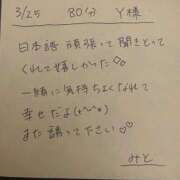 3/25 80分 Y様
日本語 頑張って聞きとって
くれて嬉しかった♡♡
一緒に気持ちよくなれて
幸せだよ(+˘⌣˘*)
また誘って下さい♡♡
みと